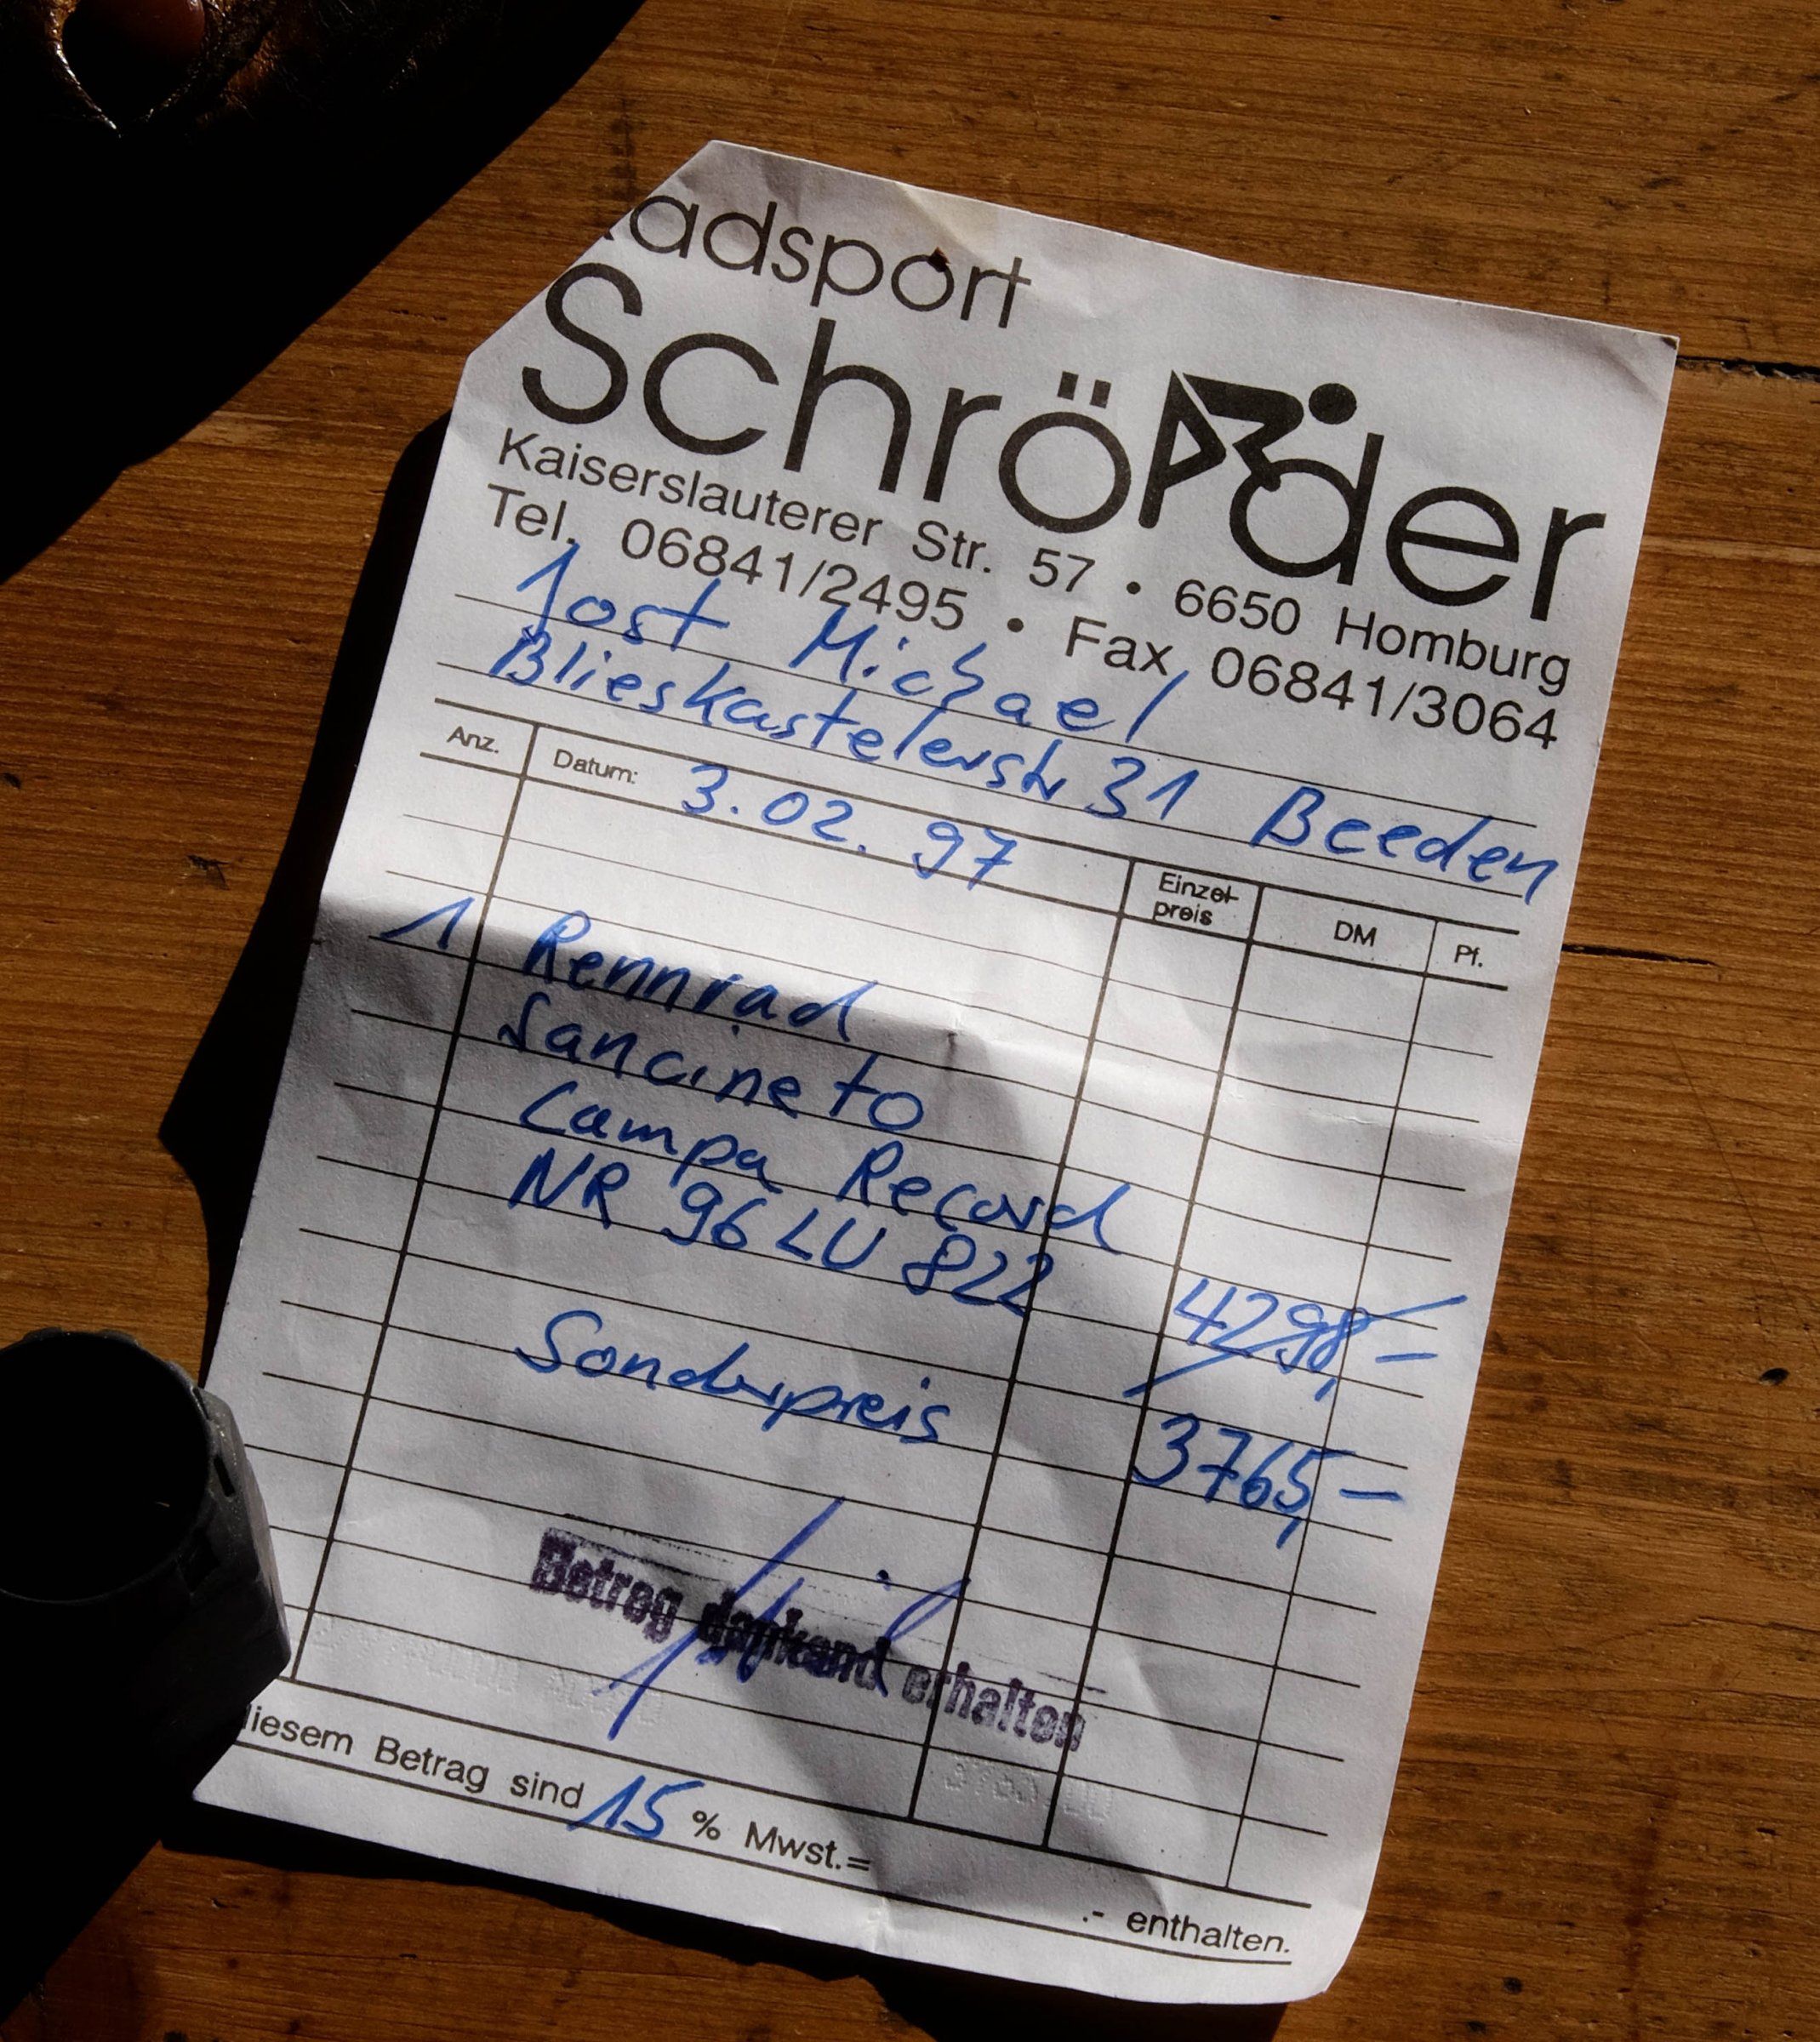 adsport
Schröder
Kaiserslauterer Str. 57 • 6650 Homburg
Tel. 06841/2495 • Fax 06841/3064
Jost Michael
Blieskastelerstr 31 Beeden
Anz. Datum: 3.02.97 Einzel-preis DM Pf.
1 Rennrad
Sancineto
Campa Record
NR 96 LU 822 4298,-
Sonderpreis 3765,-
Betrag dankend erhalten
diesem Betrag sind 15 % Mwst.=
.- enthalten.